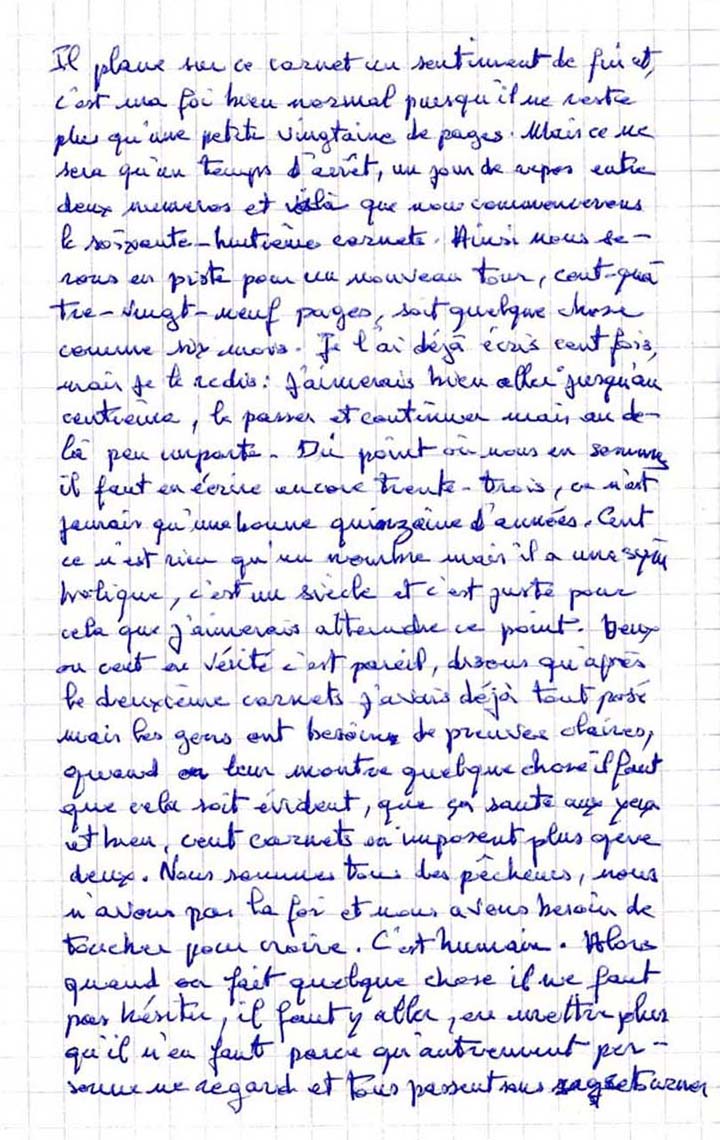 Il plane sur ce carnet un sentiment de fin et,
c'est ma foi bien normal puisqu'il ne reste
plus qu'une petite vingtaine de pages. Mais ce ne
sera qu'un temps d'arrêt, un jour de repos entre
deux numeros et voilà que nous commencerons
le soixante-huitième carnets. Ainsi nous se-
rons en piste pour un nouveau tour, cent-qua
tre-vingt-neuf pages, soit quelque chose
comme six mois. Je l'ai déjà écris cent fois,
mais je le redis: j'aimerais bien aller jusqu'au
centième, le passer et continuer mais au de-
là peu importe. Du point où nous en sommes
il faut en écrire encore trente-trois, ce n'est
jamais qu'une bonne quinzaine d'années. Cent
ce n'est rien qu'un nombre mais il a une sym
bolique, c'est un siècle et c'est juste pour
cela que j'aimerais atteindre ce point. Deux
ou cent en vérité c'est pareil, disons qu'après
le deuxième carnets j'avais déjà tout posé
mais les gens ont besoin de preuves claires,
quand on leur montre quelque chose il faut
que cela soit évident, que ça saute aux yeux
et bien, cent carnets en imposent plus que
deux. Nous sommes tous des pêcheurs, nous
n'avons pas la foi et nous avons besoin de
toucher pour croire. C'est humain. Alors
quand on fait quelque chose il ne faut
pas hésiter, il faut y aller, en mettre plus
qu'il n'en faut parce qu'autrement per-
sonne ne regard et tous passent sans se retourner